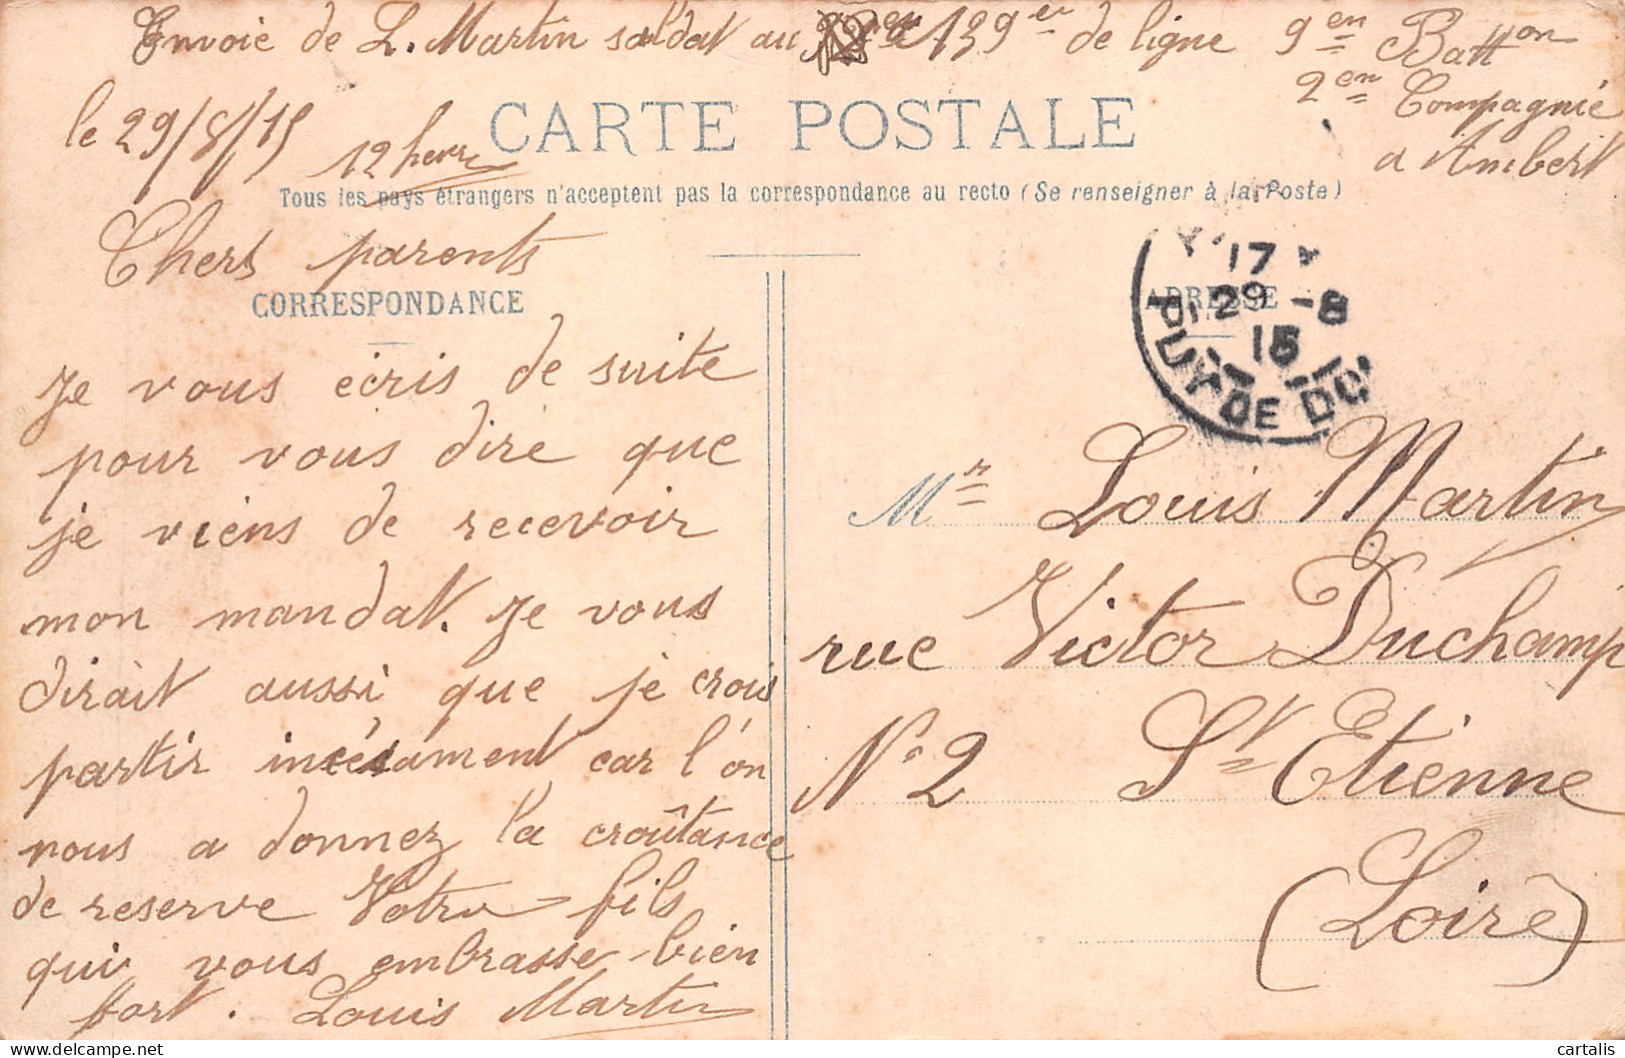 Envoie de L. Martin soldat au 139er de ligne 9en Batton
2en Compagnie
a Ambert
le 29/8/15 12 heur
CARTE POSTALE
Tous les pays étrangers n'acceptent pas la correspondance au recto (Se renseigner à la Poste)
Chers parents
CORRESPONDANCE
Je vous écris de suite
pour vous dire que
je viens de recevoir
mon mandat. Je vous
dirait aussi que je crois
partir incésament car l'on
nous a donnez la croûtance
de reserve Votre fils
qui vous embrasse bien
fort. Louis Martin
ADRESSE
17
29 -8
15
PUY DE DO
Mr Louis Martin
rue Victor Duchamp
No 2 St Etienne
(Loire)
cartalis